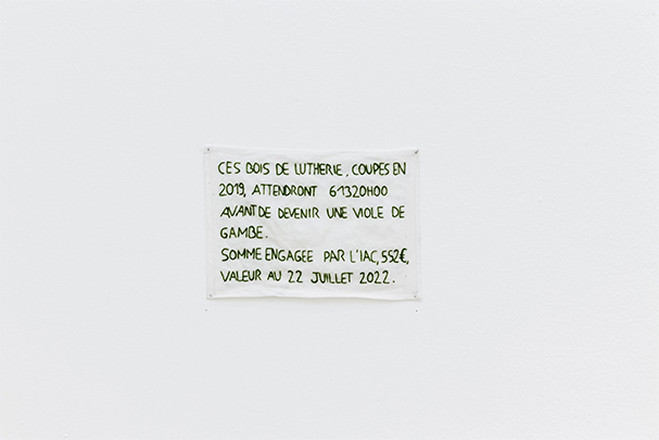 CES BOIS DE LUTHERIE, COUPES EN
2019, ATTENDRONT 61320H00
AVANT DE DEVENIR UNE VIOLE DE
GAMBE.
SOMME ENGAGEE PAR L'IAC, 552€,
VALEUR AU 22 JUILLET 2022.